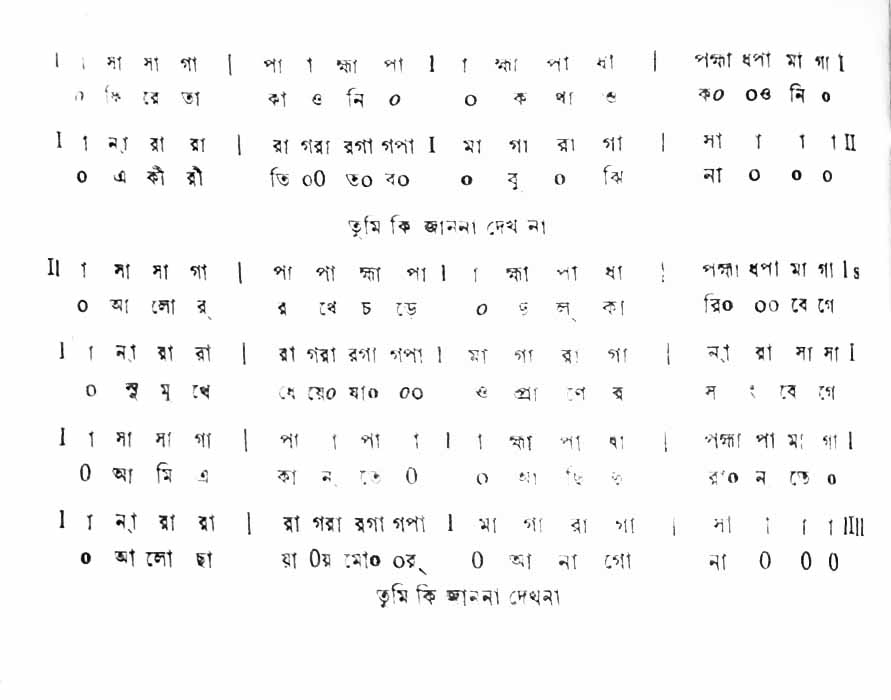 I । সা সা গা | পা া হ্মা পা I া হ্মা পা ধা | পহ্মা ধপা মা গা I
০ ফি রে তা কা ও নি ০ ০ ক পা ও ক০ ০ও নি ০
I া ন্া রা রা | রা গরা রগা গপা I মা গা রা গা | সা া া া II
০ এ কী রী তি ০০ ত০ ব০ ০ বু ০ ঝি না ০ ০ ০
তুমি কি জাননা দেখ না
II া সা সা গা | পা পা হ্মা পা I া হ্মা পা ধা | পহ্মা ধপা মা গা I s
০ আ লো র্ র থে চ ড়ে ০ ল্ কা রি০ ০০ বে গে
I া ন্া রা রা | রা গরা রগা গপা I মা গা রা গা | ন্া রা সা সা I
০ সু মু খে ধে য়ে০ যা০ ০০ ও প্রা ণে র স ং বে গে
I া সা সা গা | পা া পা া I া হ্মা পা ধা | পহ্মা পা মা গা I
০ আ মি এ কা ন্ তে ০ ০ আ ছি র০ ন্ তে ০
I া ন্া রা রা | রা গরা রগা গপা I মা গা রা গা | সা া া া IIII
০ আ লো ছা য়া ০য় মো০ ০র্ ০ আ না গো না ০ ০ ০
তুমি কি জাননা দেখনা